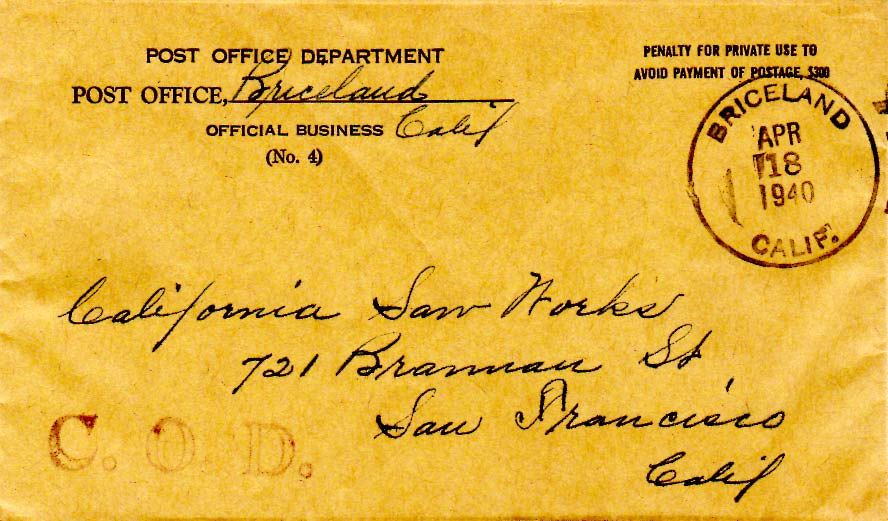 POST OFFICE DEPARTMENT
POST OFFICE, Briceland
OFFICIAL BUSINESS Calif
(No. 4)
PENALTY FOR PRIVATE USE TO
AVOID PAYMENT OF POSTAGE, $300
BRICELAND
APR
18
1940
CALIF.
California Saw Works
721 Brannan St
San Francisco
Calif
C. O. D.